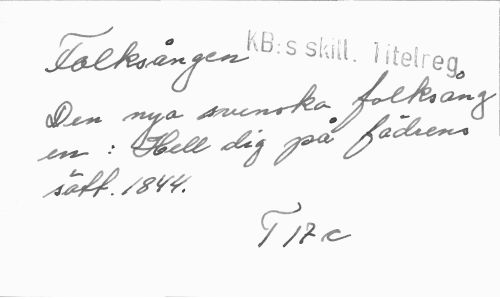 Folksången
KB:s skill. Titelreg.
Den nya svenska folksång
en : Hell dig på fädrens
sätt. 1844.
T 17 c